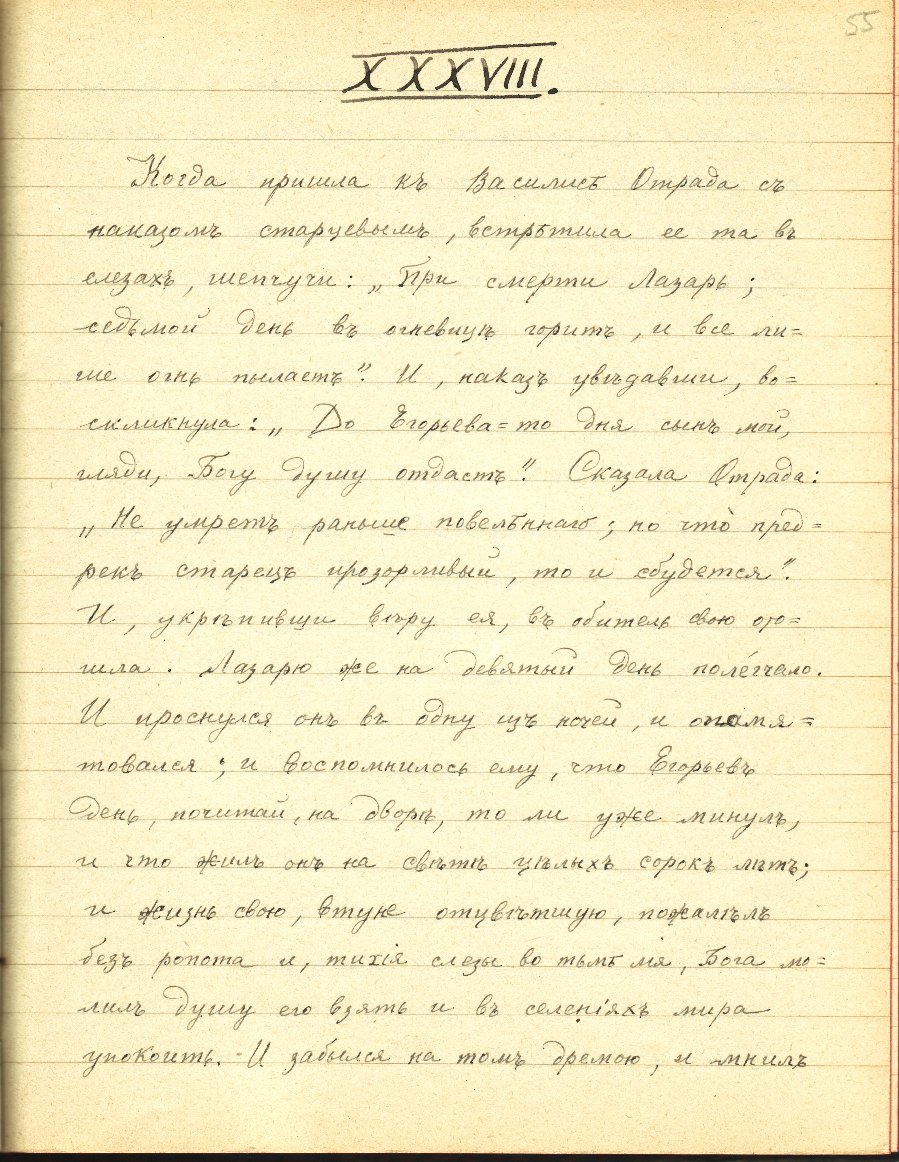 55
XXXVIII.
Когда пришла къ Василисѣ Отрада съ
наказомъ старцевымъ, встрѣтила ее та въ
слезахъ, шепчучи: „При смерти Лазарь;
седьмой день въ огневицѣ горитъ, и все ли=
ше огнь пылаетъ". И, наказъ увѣдавши, во=
скликнула: „До Егорьева=то дня сынъ мой,
гляди, Богу душу отдастъ". Сказала Отрада:
„Не умретъ раньше повелѣннаго; но что̀ пред=
рекъ старецъ прозорливый, то и сбудется".
И, укрѣпивши вѣру ея, въ обитель свою ото=
шла. Лазарю же на девятый день поле́гчало.
И проснулся онъ въ одну изъ ночей, и опамя=
товался; и воспомнилось ему, что Егорьевъ
день, почитай, на дворѣ, то ли уже минулъ,
и что жилъ онъ на свѣтѣ цѣлыхъ сорокъ лѣтъ;
и жизнь свою, втуне отцвѣтшую, пожалѣлъ
безъ ропота и, тихія слезы во тьмѣ лія, Бога мо=
лилъ душу его взять и въ селеніяхъ мира
упокоить. И забылся на томъ дремою, и мнилъ